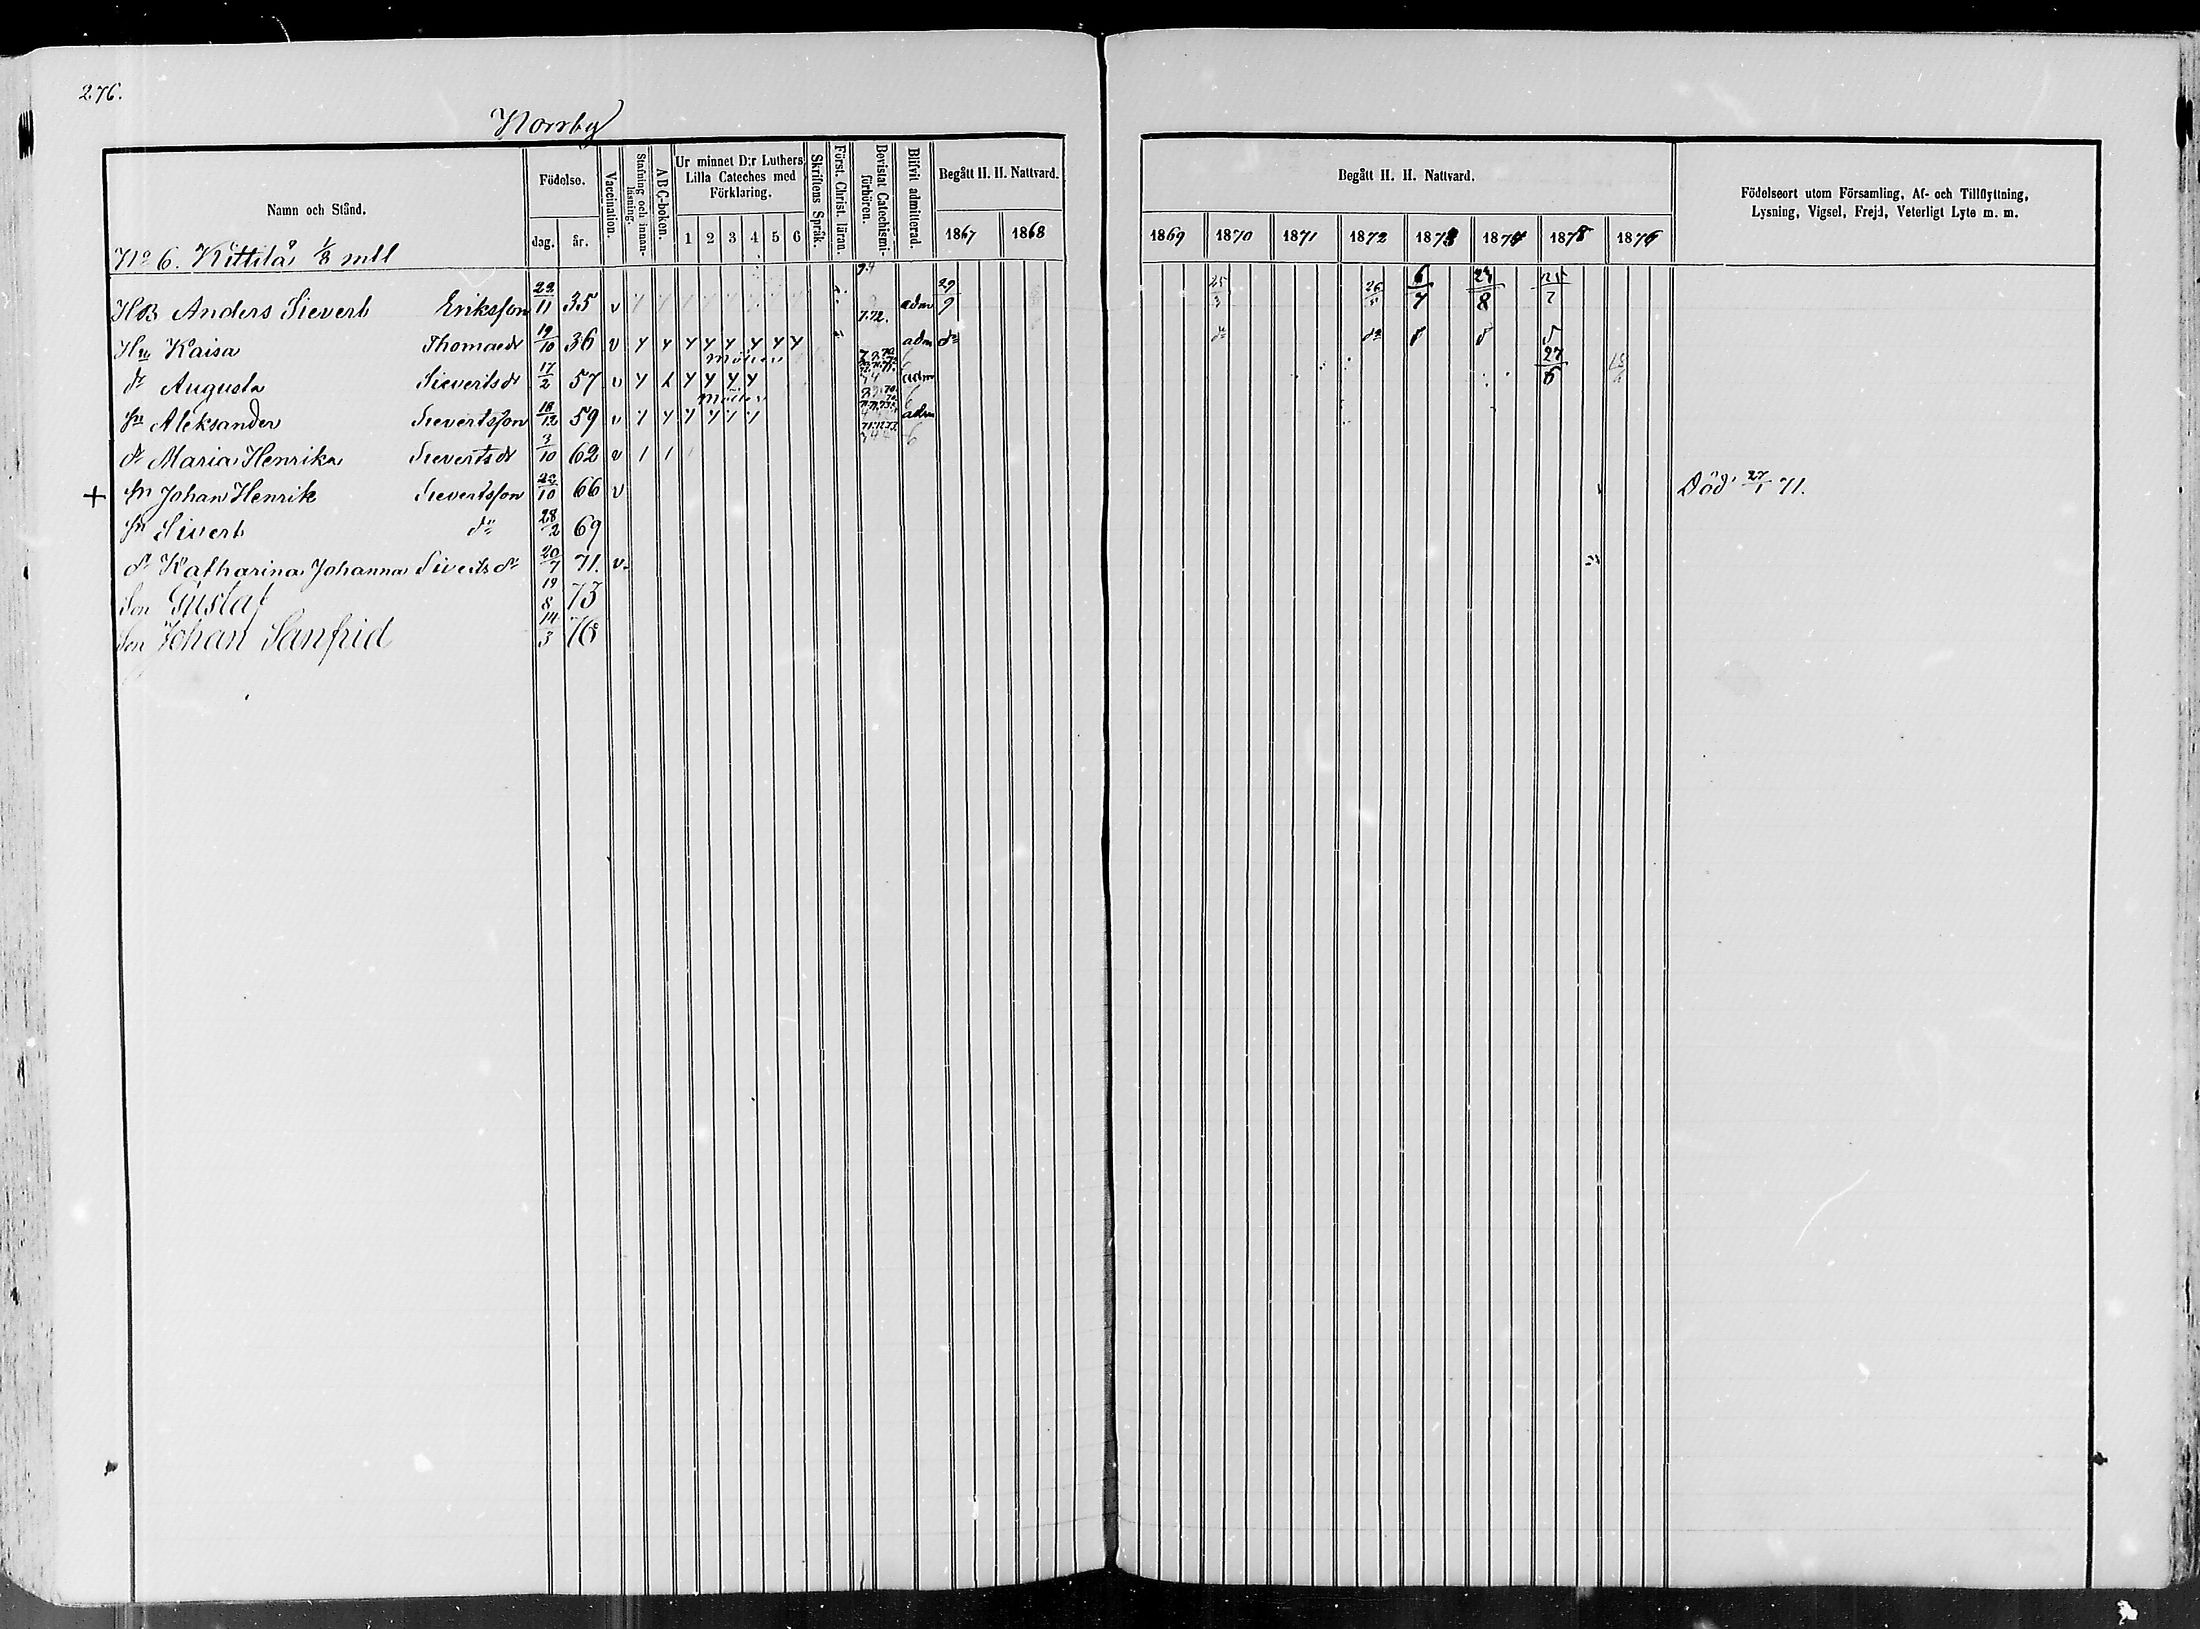 276.
Norrby
Namn och Stånd.
Födelse.
dag.
år.
Vaccination.
Stafning och innanläsning.
A B C-boken.
Ur minnet D:r Luthers Lilla Cateches med Förklaring.
1 2 3 4 5 6
Skriftens Språk.
Först. Christ. läran.
Bevistat Catechismi-förhören.
Blifvit admitterad.
Begått H. H. Nattvard.
1867 1868
Begått H. H. Nattvard.
1869 1870 1871 1872 1873 1874 1875 1876
Födelseort utom Församling, Af- och Tillflyttning,
Lysning, Vigsel, Frejd, Veterligt Lyte m. m.
No 6. Kittilä 1/8 mtl
HB Anders Sievert Eriksson 22/11 35 v adm 29/9 25/3 26/5 6/7 23/8 25/7
Hu Kaisa Thomædr 19/10 36 v adm do do do
dr Augusta Sievertsdr 17/2 57 v adm 27/6
sn Aleksander Sievertsson 18/12 59 v adm
dr Maria Henrika Sievertsdr 3/10 62 v
+ sn Johan Henrik Sievertsson 22/10 66 v Död 27/1 71.
sn Sivert do 28/2 69
dr Katharina Johanna Sivertsdr 20/7 71. v.
Son Gustaf 19/8 73
Son Johan Sanfrid 14/3 76